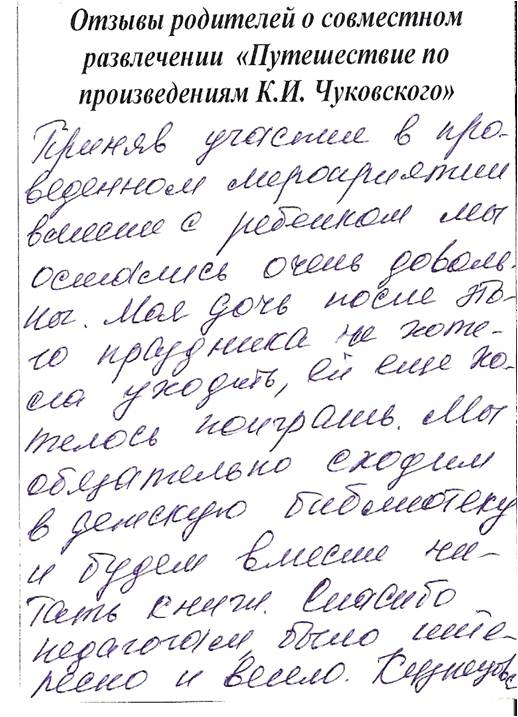 Отзывы родителей о совместном
развлечении «Путешествие по
произведениям К.И. Чуковского»
Приняв участие в про-
веденном мероприятии
вместе с ребенком мы
остались очень доволь-
ны. Моя дочь после это-
го праздника не хоте-
ла уходить, ей еще хо-
телось поиграть. Мы
обязательно сходим
в детскую библиотеку
и будем вместе чи-
тать книги. Спасибо
педагогам, было инте-
ресно и весело.